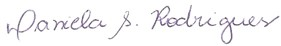 Daniela S. Rodrigues